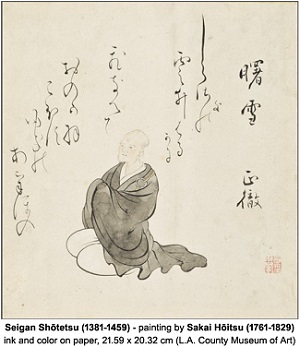 曙雪
正徹
雲井はる
かに
飛きえて
おのか羽
こほす
あけほの
Seigan Shōtetsu (1381-1459) - painting by Sakai Hōitsu (1761-1829)
ink and color on paper, 21.59 x 20.32 cm (L.A. County Museum of Art)